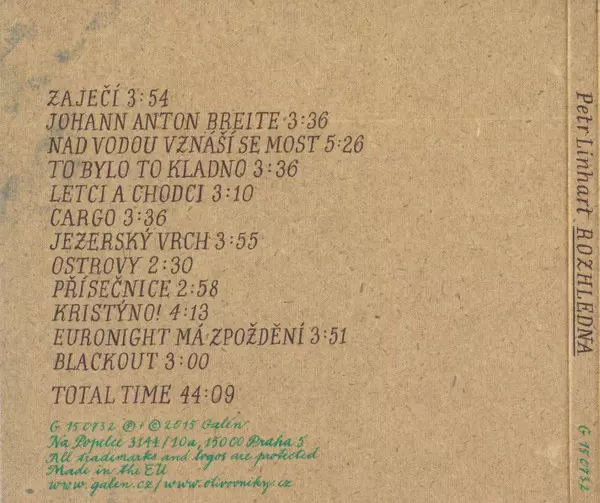 ZAJEČÍ 3:54
JOHANN ANTON BREITE 3:36
NAD VODOU VZNÁŠÍ SE MOST 5:26
TO BYLO TO KLADNO 3:36
LETCI A CHODCI 3:10
CARGO 3:36
JEZERSKÝ VRCH 3:55
OSTROVY 2:30
PŘÍSEČNICE 2:58
KRISTÝNO! 4:13
EURONIGHT MÁ ZPOŽDĚNÍ 3:51
BLACKOUT 3:00
TOTAL TIME 44:09
G 150732 ℗ + © 2015 Galén
Na Popelce 3144/10a, 15000 Praha 5
All trademarks and logos are protected
Made in the EU
www.galen.cz/www.olivovniky.cz
Petr Linhart ROZHLEDNA
G 150732